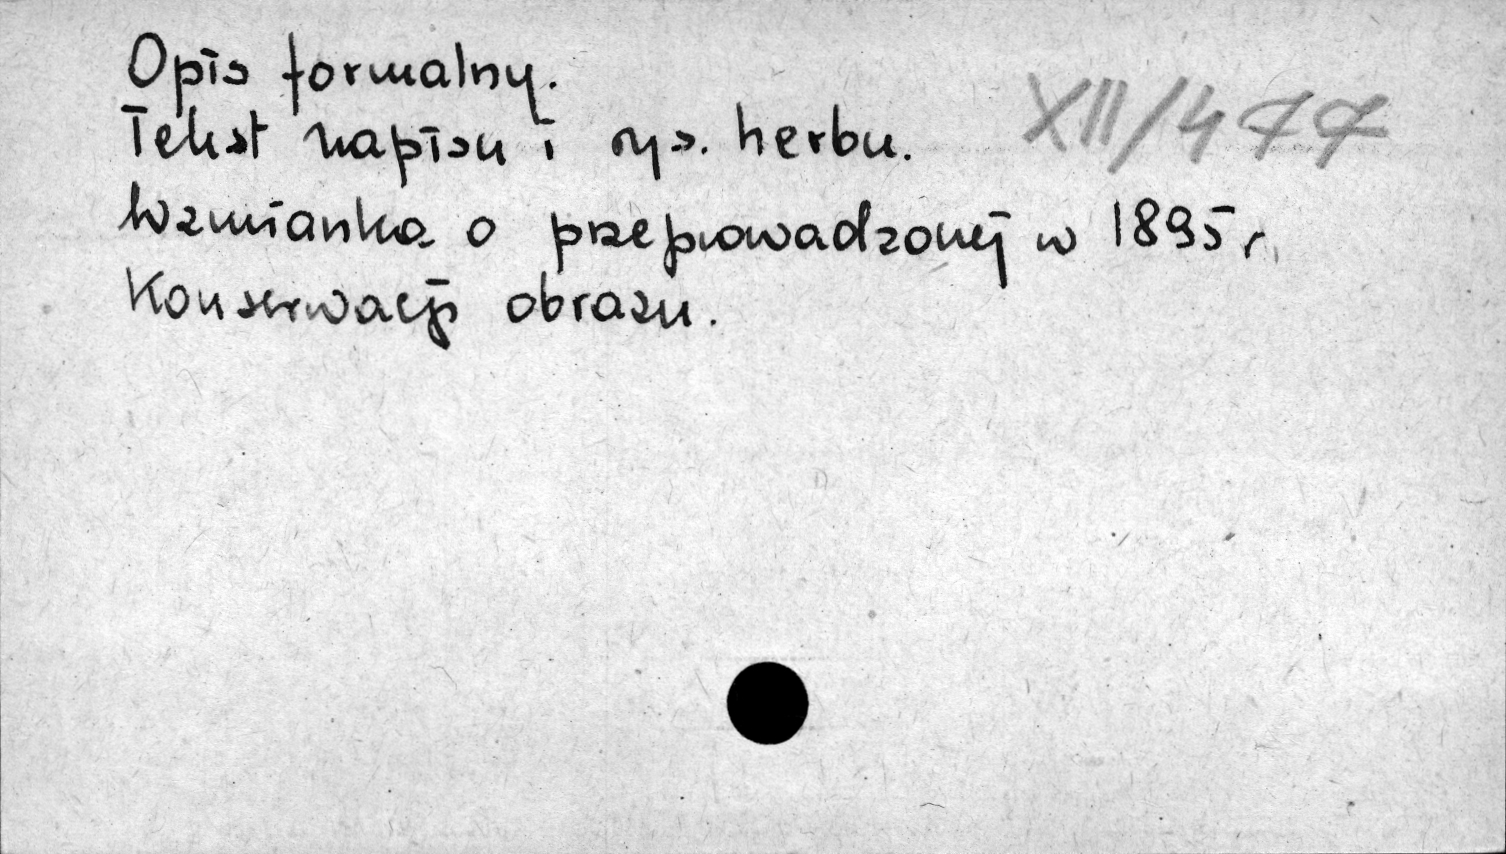 Opis formalny.
Tekst napisu i rys. herbu.
XII/477
Wzmianka o przeprowadzonej w 1895 r.
Konserwacji obrazu.